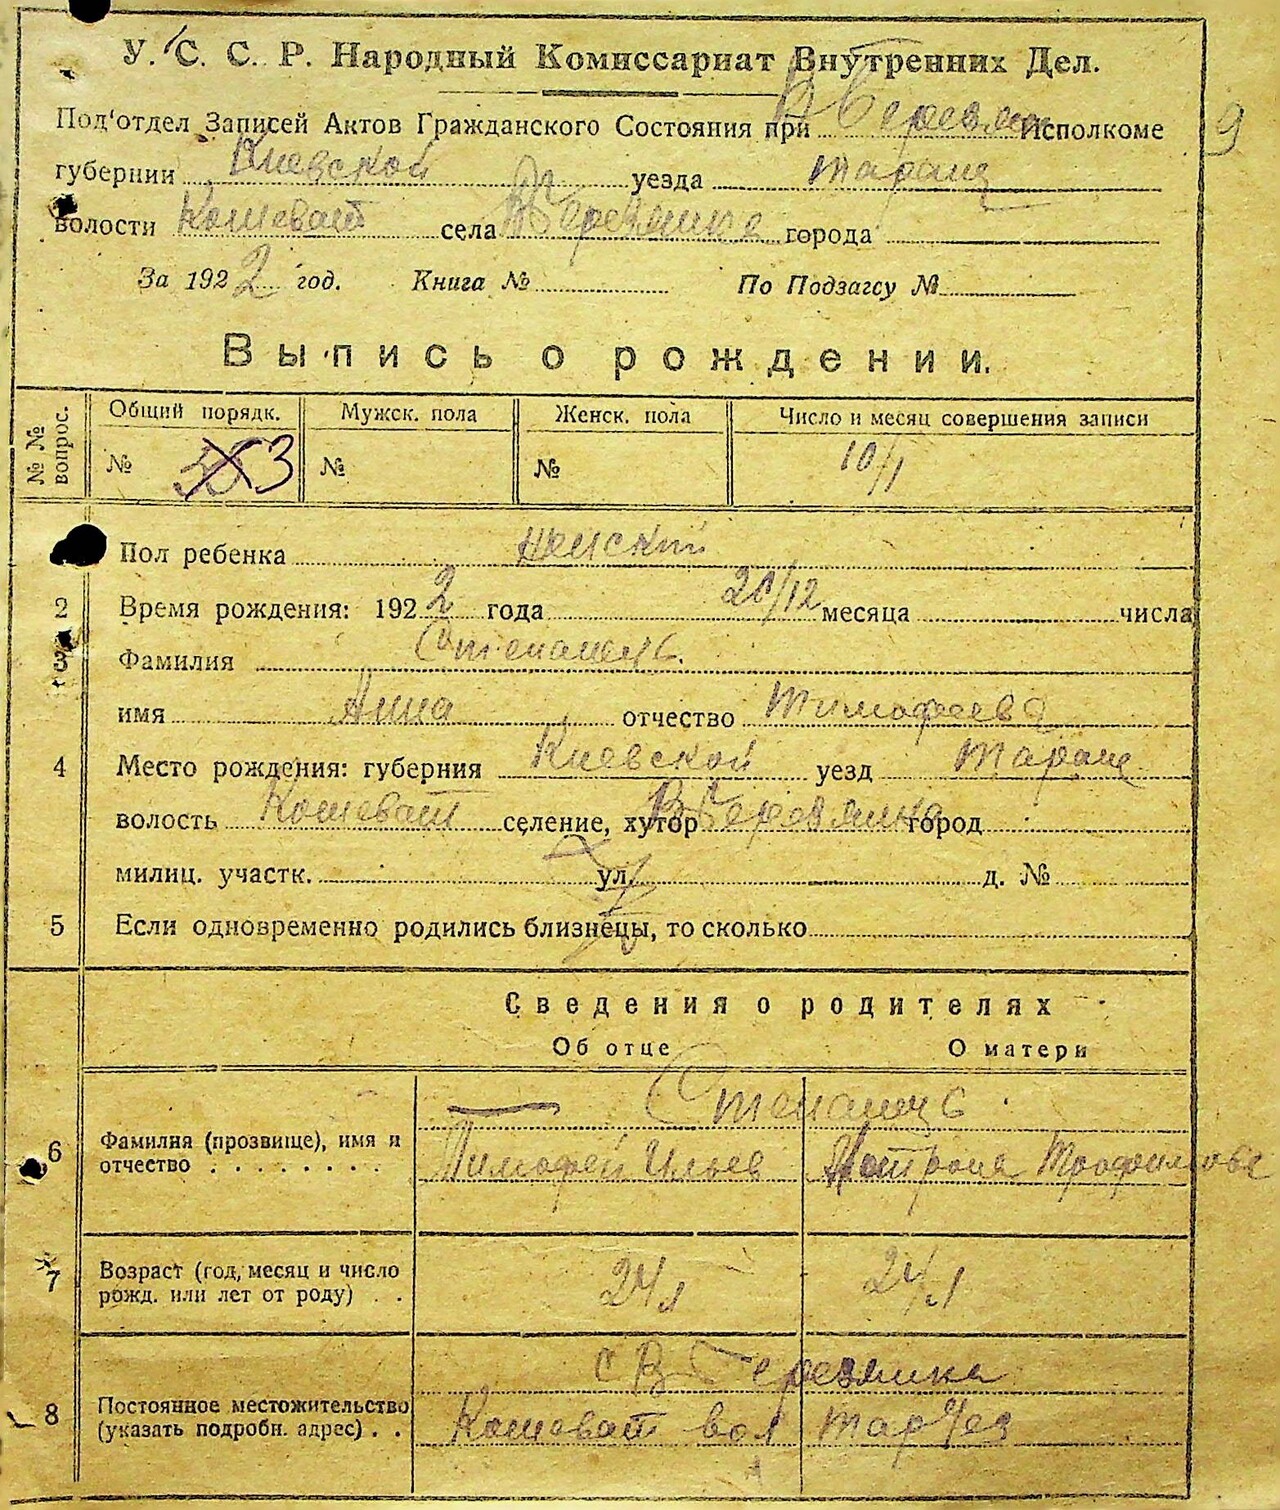 У. С. С. Р. Народный Комиссариат Внутренних Дел.
Под'отдел Записей Актов Гражданского Состояния при В Березян Исполкоме
9
губернии Киевской уезда Таращ
волости Кошеват села В Березянка города
За 1922 год. Книга № По Подзагсу №
Выпись о рождении.
№ № вопрос. Общий порядк. Мужск. пола Женск. пола Число и месяц совершения записи
№ 3 № № 10/1
Пол ребенка женский
2 Время рождения: 1922 года 20/12 месяца числа
3 Фамилия Степанець.
имя Анна отчество Тимофеева
4 Место рождения: губерния Киевской уезд Таращ
волость Кошеват селение, хутор В Березянка город
милиц. участк. ул. д. №
5 Если одновременно родились близнецы, то сколько
Сведения о родителях
Об отце О матери
Степанець
6 Фамилия (прозвище), имя и
отчество . . . . . . . . Тимофей Ильев Мотрона Трофимова
7 Возраст (год, месяц и число
рожд. или лет от роду) . . 24 л 24 л
с В Березянка
8 Постоянное местожительство
(указать подробн. адрес) . . Кошеват вол Тар уез